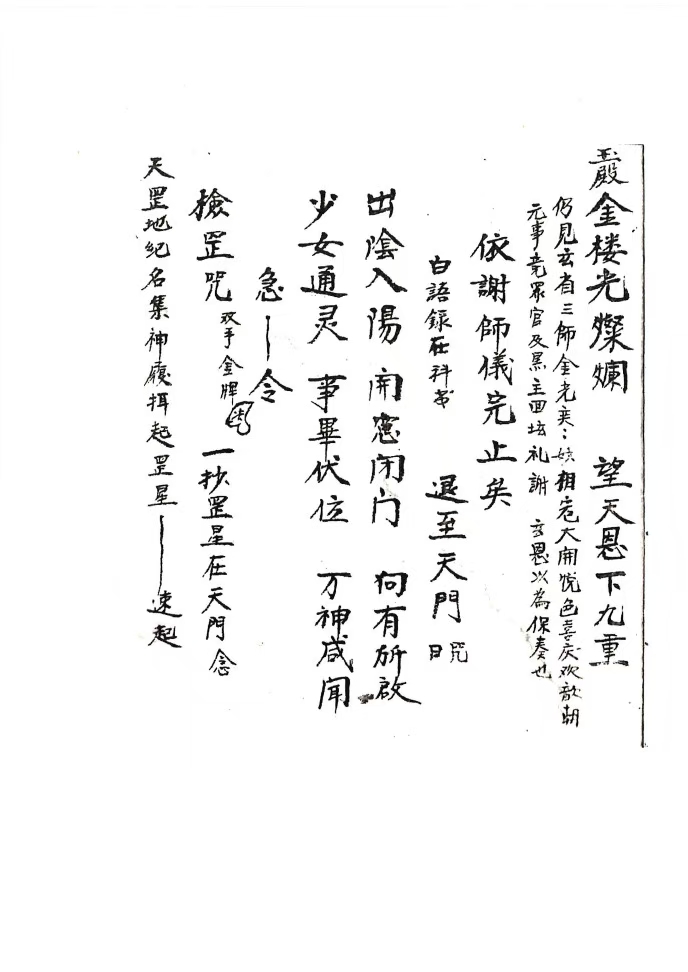 玉殿金楼光燦爛　望天恩下九重
仍見玄省三師金光奕：　相　大開悦色喜庆欢　朝
元事竟眾官及黑主回坛礼謝　玄恩以為保奏也
依謝師儀完止矣
白語錄在科書　退至天門　咒曰
出陰入陽　開窓闭门　向有所啟
少女通灵　事畢伏位　万神咸聞
急—令
檢罡咒　双手金牌　一抄罡星在天門　念
天罡地紀名集神　　起罡星——速起